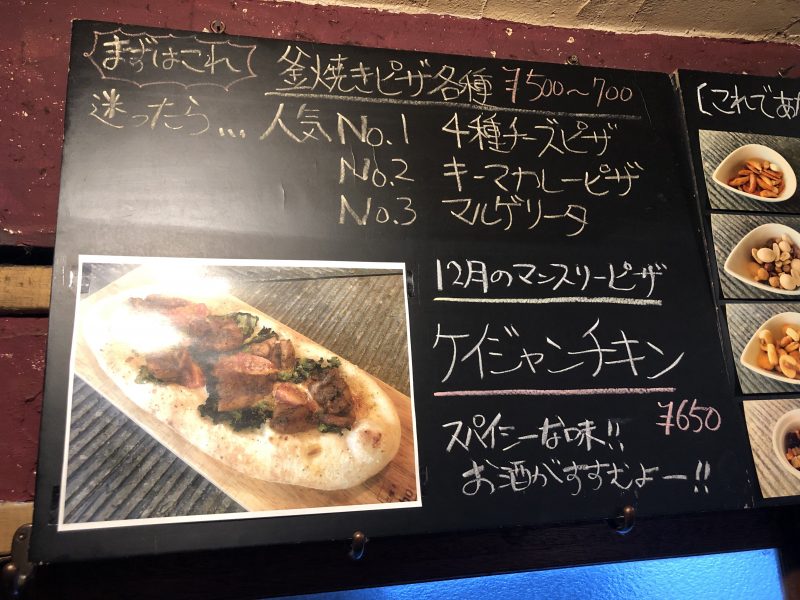 まずはこれ
釜焼きピザ各種 ¥500～700
迷ったら... 人気No.1 4種チーズピザ
No.2 キーマカレーピザ
No.3 マルゲリータ
12月のマンスリーピザ
ケイジャンチキン
¥650
スパイシーな味!!
お酒がすすむよー!!
【これであ